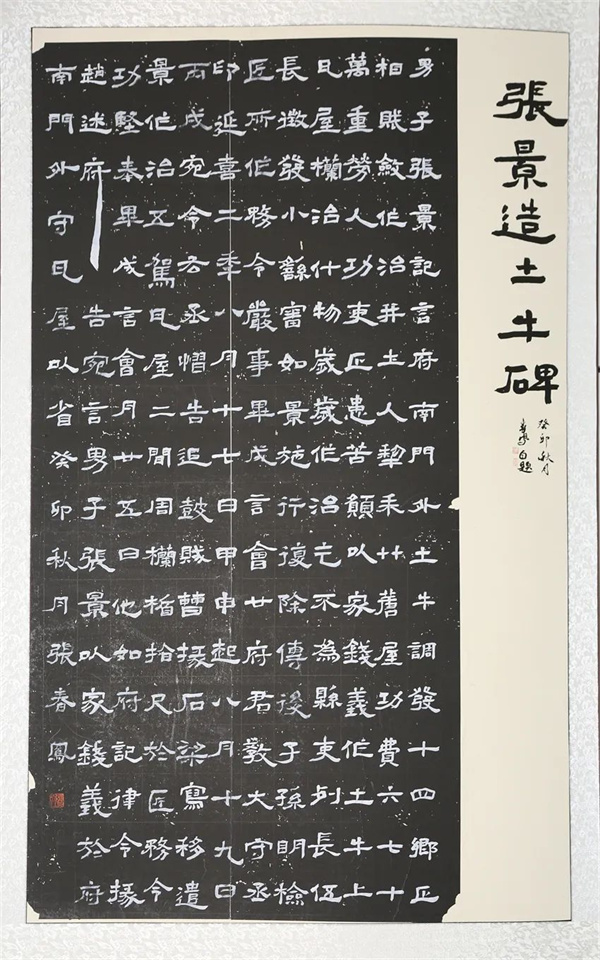 張景造土牛碑
癸卯秋月
春鳳自題
男子張景記言府南門外土牛調發十四鄉正
相賦斂作治并土人犁耒艹蓆屋功費六七十
萬重勞人功吏正患苦願以家錢義作土牛上
瓦屋欄治什物歲歲作治乞不為縣吏列長伍
長徵發小繇審如景施行復除傳後子孫明檢
匠所作務令嚴事畢成言會廿府君教大守丞
印延熹二年八月十七日甲申起八月十九日
丙戌宛令右丞慴告追鼓賊曹掾石梁寫移遣
景作治五駕瓦屋二間周欄楯拾尺於匠務令
功堅奉畢成言會月廿五日他如府記律令掾
趙述府告宛言男子張景以家錢義於府
南門外守瓦屋以省癸卯秋月張春鳳